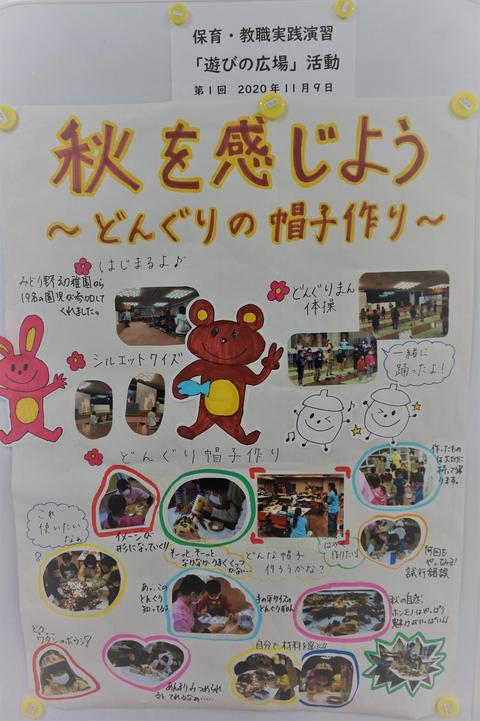 保育・教職実践演習
「遊びの広場」活動
第1回 2020年11月9日
秋を感じよう
～どんぐりの帽子作り～
はじまるよ♪
みどり野幼稚園から
19名の園児が参加して
くれました。
どんぐりまん
体操
シルエットクイズ
一緒に
踊ったよ！
どんぐり帽子作り
作ったもの
は大切に
持って帰
ります。
これ
使いたい
なぁ
イメージが
形になっていく!!
そーっと、そーっと
なかなかうまくくっつ
かない…
どんな帽子
作ろうかな？
はやく
作りたいな
何回も
やってみる！
試行錯誤
あっ、この
どんぐり
知ってる
秋の自然
ホンモノはやっぱり
魅力がいっぱい!!
ワタシのボウシ！
自分で材料を選ぶ!!
あんまりみつめられ
ると てれるなぁ……